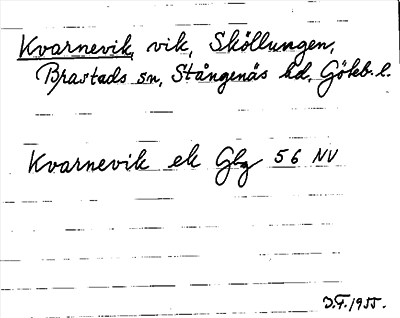 Kvarnevik, vik, Sköllungen,
Brastads sn, Stångenäs hd, Göteb. l.
Kvarnevik ek Gbg 56 NV
D.F. 1955.